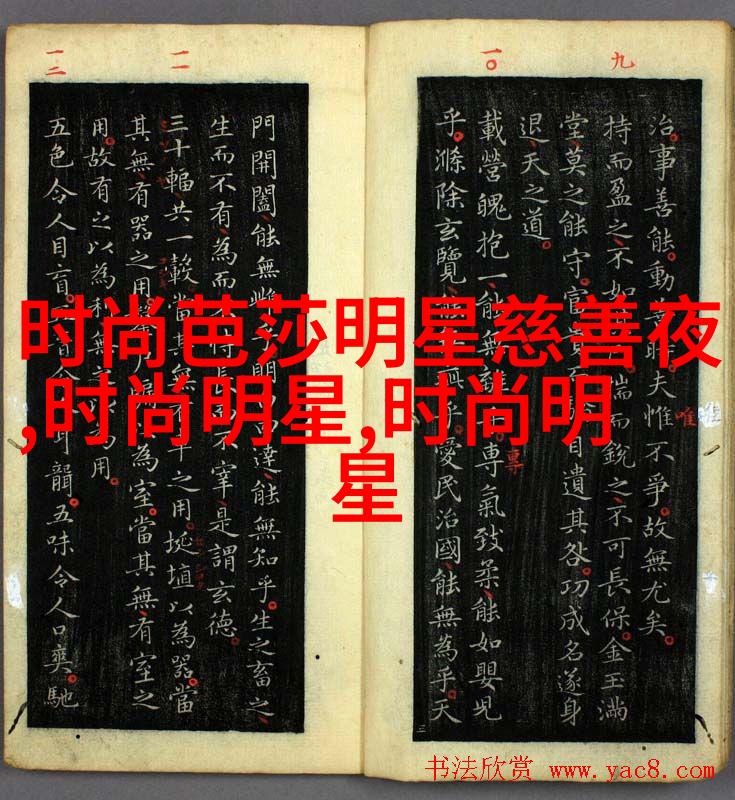 时尚芭莎明星慈善夜
,时尚明星,时尚明
星
九
治。事善能。動善夫惟不爭。故無尤矣。
唯
持而盈之不如揣而銳之不可長保。金玉滿
堂莫之能守。自遺其咎功成名遂身
退。天之道。
一〇
載營魄抱一能無專氣致柔能如嬰兒
專
乎。滌除玄覽乎。愛民治國能無為乎。天
一一
門開闔能無達能無知乎。生之畜之
生而不有為而不不宰是謂玄德。
三十輻共一轂當其無之用。埏埴以為器。當
其無有器之用。為室。當其無有室之
一二
用。故有之以為用。
五色令人目盲。聾。五味令人口爽。馳
书法欣赏 www.yac8.com